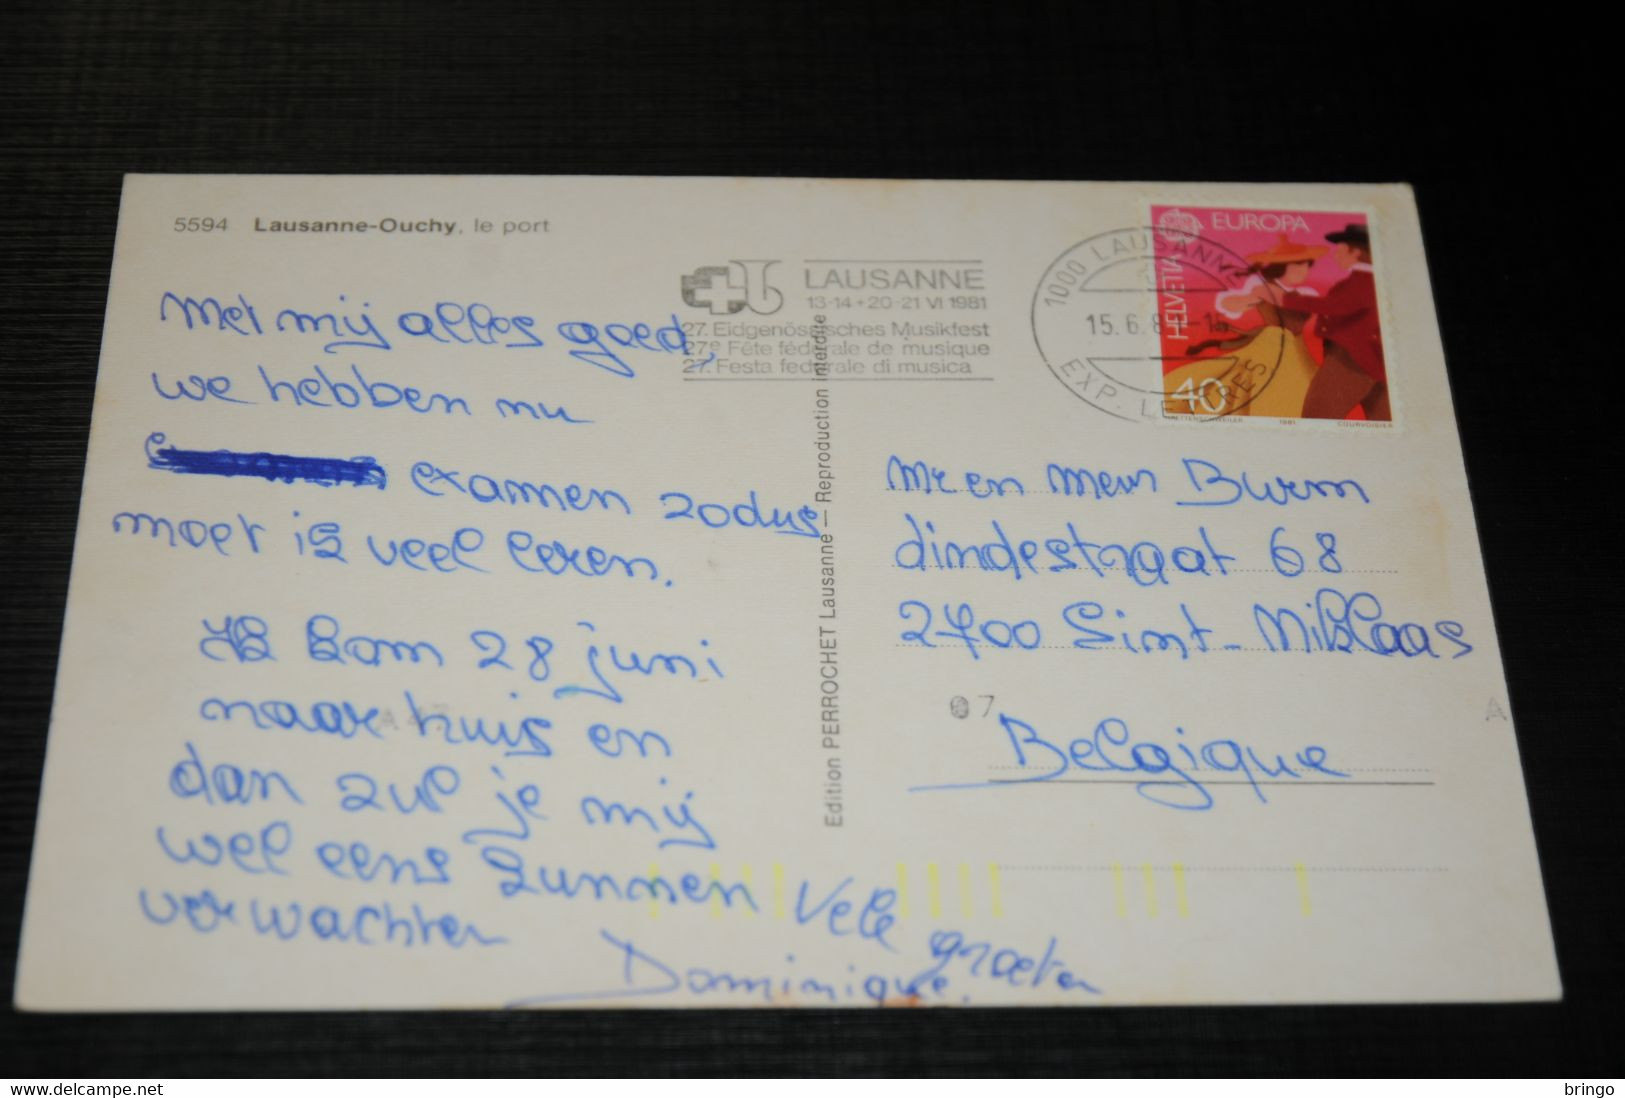 5594 Lausanne-Ouchy, le port
LAUSANNE
13-14+20-21 VI 1981
27. Eidgenössisches Musikfest
27e Fête fédérale de musique
27. Festa federale di musica
1000 LAUSANNE
15. 6. 8
EXP. LETTRES
EUROPA
HELVETIA
40
1981
COURVOISIER
Met mij alles goed,
we hebben nu
examen zodus
moet is veel leren.
Ik kom 28 juni
naar huis en
dan zul je mij
wel eens kunnen
verwachten
Vele
groeten
Dominique.
Edition PERROCHET Lausanne — Reproduction interdite
Mr en Mevr Burm
dindestraat 68
2700 Sint-Niklaas
Belgique
07
A
bringo